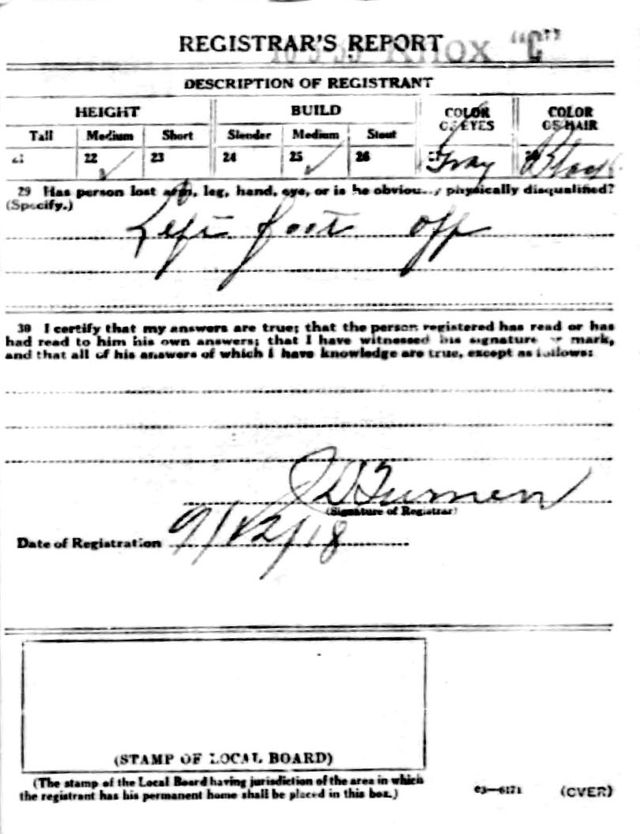 REGISTRAR'S REPORT
KNOX "C"
DESCRIPTION OF REGISTRANT
HEIGHT BUILD COLOR OF EYES COLOR OF HAIR
Tall Medium Short Slender Medium Stout
21 22 ✓ 23 24 25 ✓ 26 27 Gray 28 Black
29 Has person lost arm, leg, hand, eye, or is he obviously physically disqualified?
(Specify.)
Left foot off
30 I certify that my answers are true; that the person registered has read or has
had read to him his own answers; that I have witnessed his signature or mark,
and that all of his answers of which I have knowledge are true, except as follows:
(Signature of Registrar)
Date of Registration 9/12/18
(STAMP OF LOCAL BOARD)
(The stamp of the Local Board having jurisdiction of the area in which
the registrant has his permanent home shall be placed in this box.)
03—6171 (OVER)